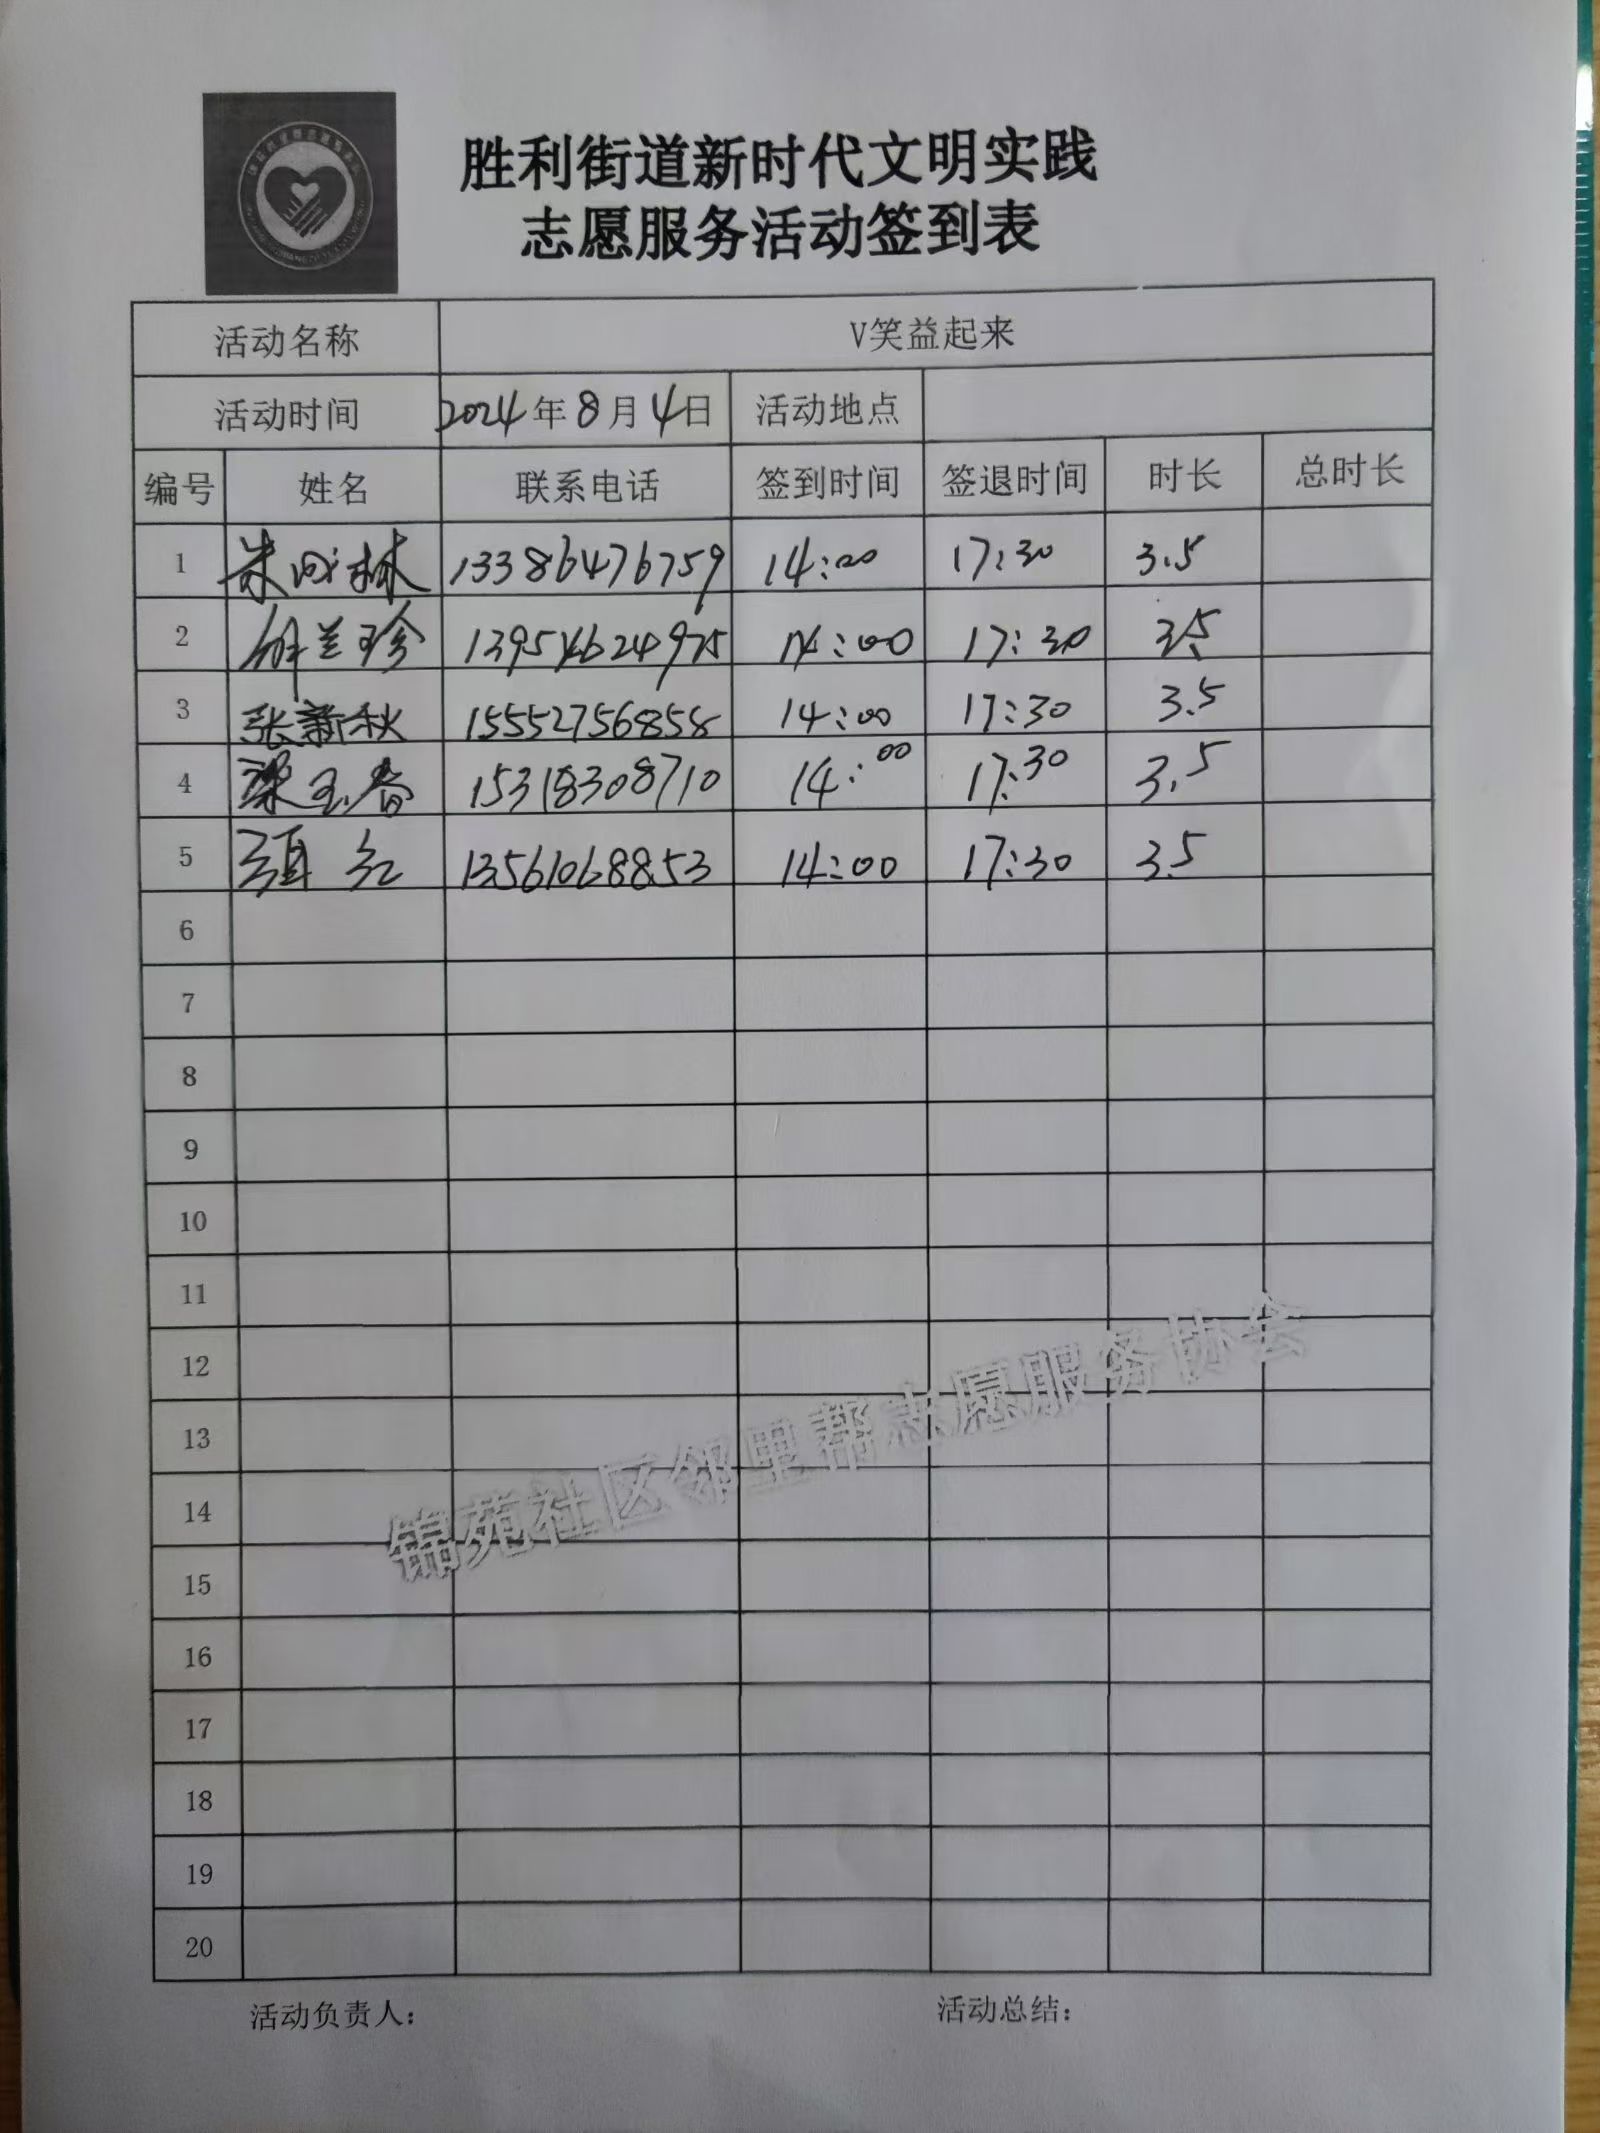 胜利街道新时代文明实践
志愿服务活动签到表
活动名称 V笑益起来
活动时间 2024年8月4日 活动地点
编号 姓名 联系电话 签到时间 签退时间 时长 总时长
1 朱成林 13386476759 14:00 17:30 3.5
2 兰珍 13954624975 14:00 17:30 3.5
3 张新秋 15552756858 14:00 17:30 3.5
4 梁玉春 15318308710 14:00 17:30 3.5
5 红 13561068853 14:00 17:30 3.5
6
7
8
9
10
11
12
13
14
15
16
17
18
19
20
锦苑社区邻里帮志愿服务协会
活动负责人： 活动总结：